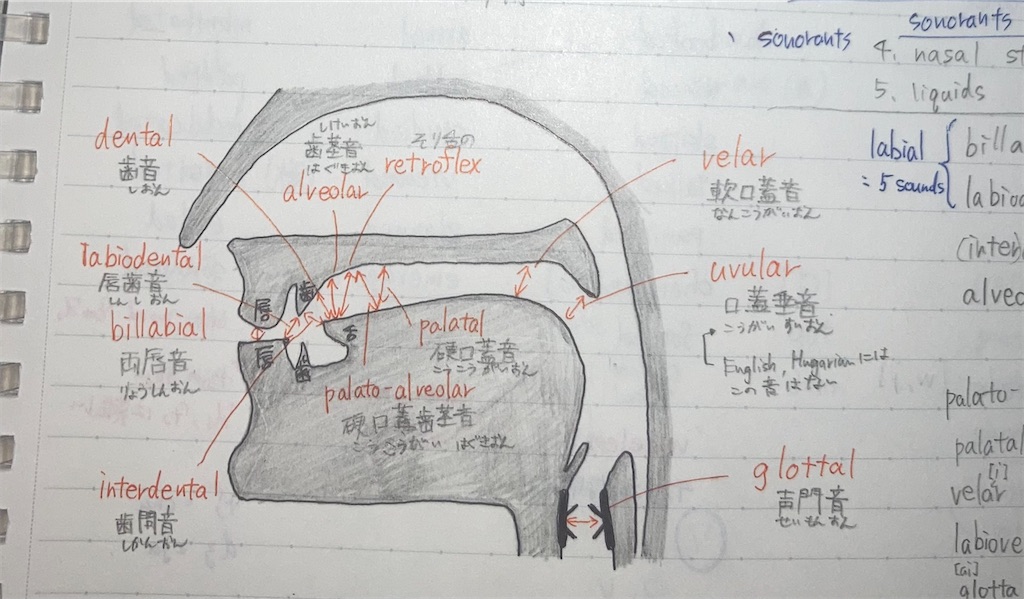 sonorants
sonorants
4. nasal st
5. liquids
labial
= 5 sounds
billa
labiod
(inter)
alveo
dental
歯音
しおん
しけいおん
歯茎音
はぐきおん
alveolar
そり舌の
retroflex
velar
軟口蓋音
なんこうがいおん
labiodental
唇歯音
しんしおん
billabial
両唇音
りょうしんおん
唇
歯
唇
歯
舌
palatal
硬口蓋音
こうこうがいおん
palato-alveolar
硬口蓋歯茎音
こうこうがい はぐきおん
uvular
口蓋垂音
こうがいすいおん
English, Hugarianには
この音はない
interdental
歯間音
しかんおん
glottal
声門音
せいもんおん
palato-
palatal
[j]
velar
labiove
glotta